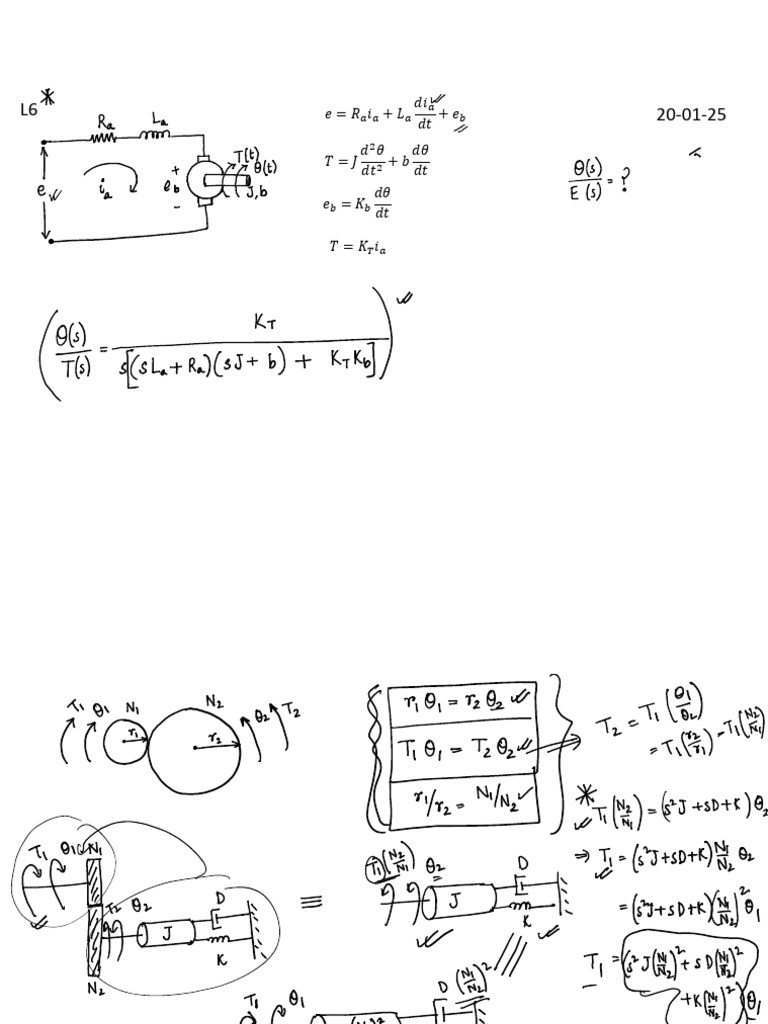 L6 *
20-01-25
Ra La
T(t)
θ(t)
e ia + eb - J, b
e = Raia + La dia/dt + eb
T = J d²θ/dt² + b dθ/dt
eb = Kb dθ/dt
T = KTia
θ(s)/E(s) = ?
θ(s)/T(s) = KT / s[(sLa + Ra)(sJ + b) + KTKb]
T1 θ1 N1 N2 θ2 T2
r1 r2
r1θ1 = r2θ2
T1θ1 = T2θ2
r1/r2 = N1/N2
T2 = T1(θ1/θ2)
= T1(r2/r1) = T1(N2/N1)
* T1(N2/N1) = (s²J + sD + K)θ2
⇒ T1 = (s²J + sD + K) N1/N2 θ2
= (s²J + sD + K)(N1/N2)² θ1
T1 = (s²J(N1/N2)² + sD(N1/N2)²
+ K(N1/N2)²)θ1
T1 θ1 N1
T2 θ2 J D K
N2
≡
T1(N2/N1) θ2 J D K
T1 θ1 D(N1/N2)²